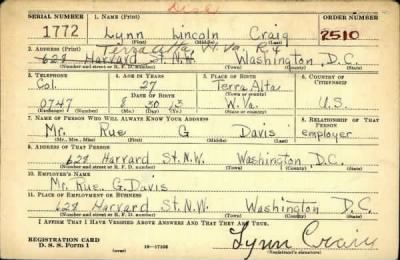 Disc
SERIAL NUMBER 1. NAME (Print) ORDER NUMBER
1772 Lynn Lincoln Craig 2510
(First) (Middle) (Last)
Terra Alta W. Va. R 4
2. ADDRESS (Print)
628 Harvard St. N.W. Washington D.C.
(Number and street or R. F. D. number) (Town) (County) (State)
3. TELEPHONE 4. AGE IN YEARS 5. PLACE OF BIRTH 6. COUNTRY OF CITIZENSHIP
Col. 27 Terra Alta
DATE OF BIRTH (Town or county)
0747 8 30 13 W. Va. U.S.
(Exchange) (Number) (Mo.) (Day) (Yr.) (State or country)
7. NAME OF PERSON WHO WILL ALWAYS KNOW YOUR ADDRESS 8. RELATIONSHIP OF THAT PERSON
Mr. Rue G Davis employer
(Mr., Mrs., Miss) (First) (Middle) (Last)
9. ADDRESS OF THAT PERSON
628 Harvard St. N.W. Washington D.C.
(Number and street or R. F. D. number) (Town) (County) (State)
10. EMPLOYER'S NAME
Mr. Rue. G. Davis
11. PLACE OF EMPLOYMENT OR BUSINESS
628 Harvard St. N.W. Washington D.C
(Number and street or R. F. D. number) (Town) (County) (State)
I AFFIRM THAT I HAVE VERIFIED ABOVE ANSWERS AND THAT THEY ARE TRUE.
REGISTRATION CARD
D. S. S. Form 1 (over) 16—17105 Lynn Craig
(Registrant's signature)